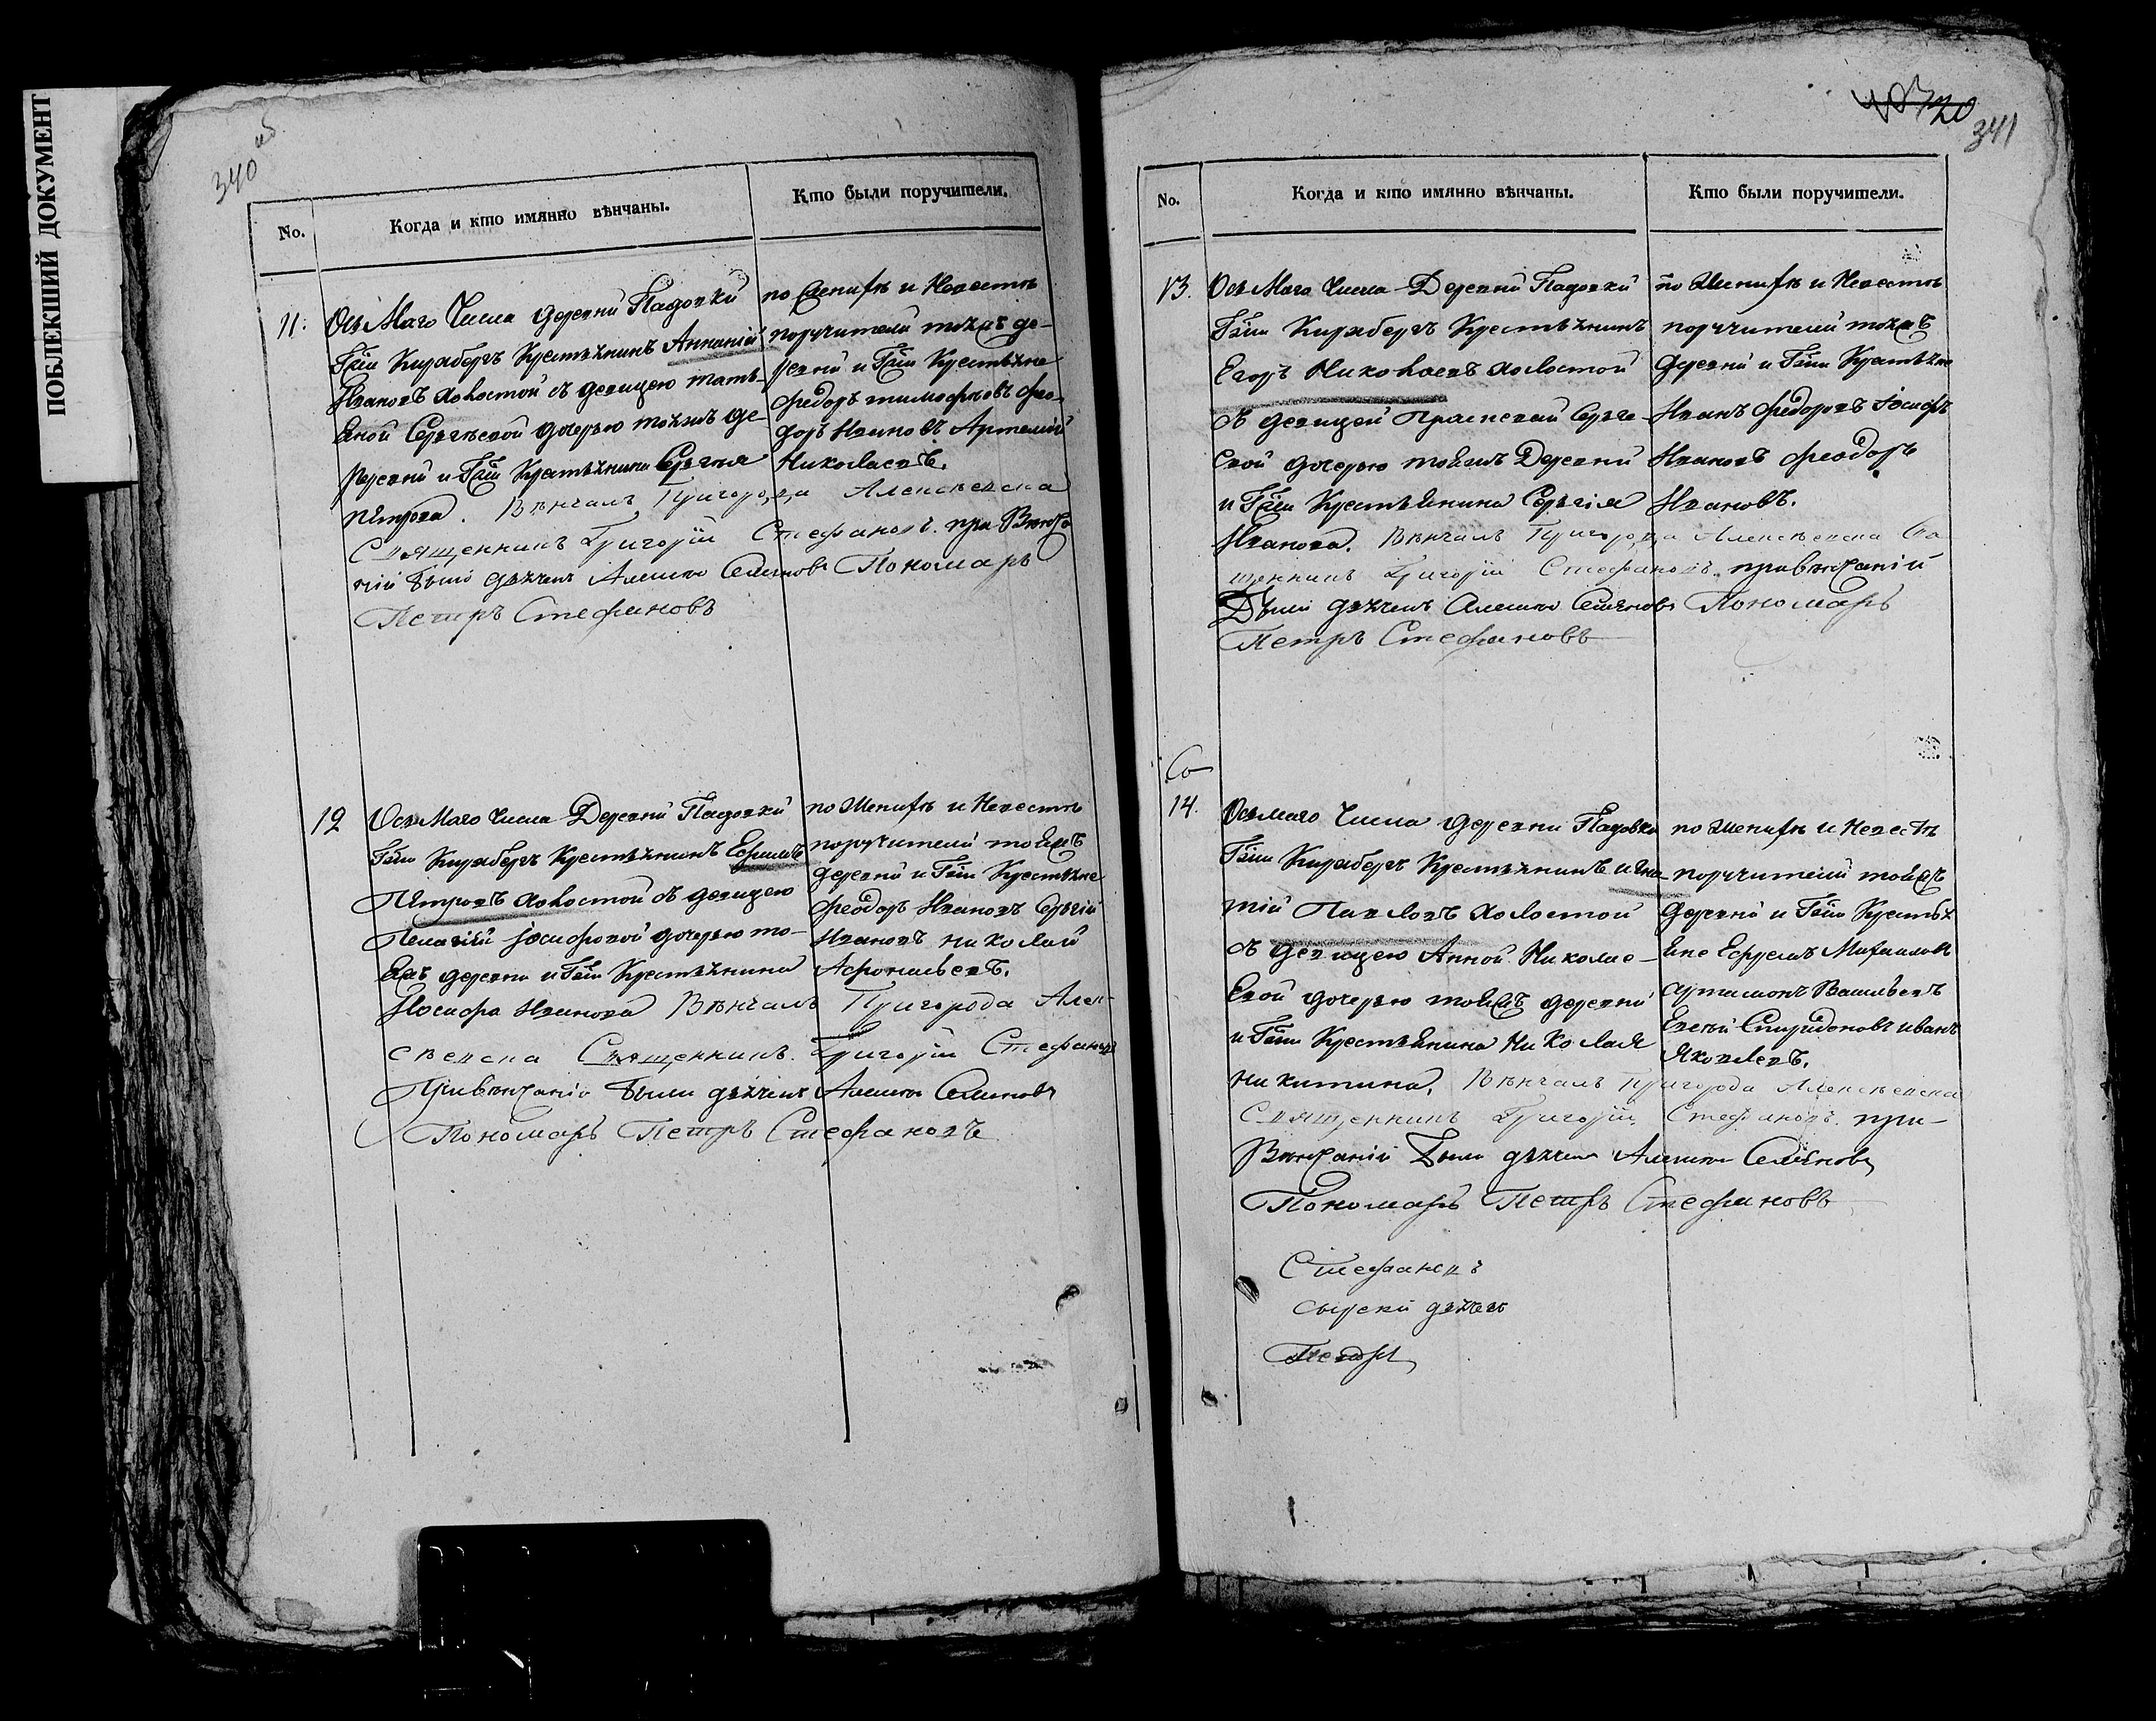 ПОБЛЕКШИЙ ДОКУМЕНТ
340 об
No.
Когда и кто имянно вѣнчаны.
Кто были поручители.
11:
Осьмаго Числа деревни Падовки
Крестьянинъ Ананiй
Ивановъ холостой съ девицею Тать-
яной Сергѣевой дочерью тояжъ де-
ревни и Крестьянина Сергея
Петрова. Вѣнчалъ Пригорода Алексѣевска
Священникъ Григорiй Стефановъ. при Вѣнча
нiй были дьячекъ Семяновъ Пономарь
Петръ Стефановъ
по Женихѣ и Невестѣ
поручители тояжъ де-
ревни и Крестьяне
Федоръ Тимофѣевъ Фео-
доръ Ивановъ Артемiй
Николаевъ.
12
Осьмаго Числа Деревни Падовки
Крестьянинъ Ефимъ
Петровъ холостой съ девицею
Пелагiей Iосифовой дочерью то-
яжъ деревни и Крестьянина
Иосифа Иванова Вѣнчалъ Пригорода Алек-
сѣевска Священникъ. Григорiй Стефановъ
При вѣнчанiи были дьячекъ Семяновъ
Пономарь Петръ Стефановъ
по Женихѣ и Невестѣ
поручители тояжъ
деревни и Крестьяне
Феодоръ Ивановъ Сергiй
Ивановъ Николай
Афонасьевъ.
20
341
No.
Когда и кто имянно вѣнчаны.
Кто были поручители.
13.
Осьмаго Числа Деревни Падовки
Крестьянинъ
Егоръ Николаевъ холостой
съ девицей Прасковай Серге-
евой дочерью тояжъ Деревни
и Крестьянина Сергiя
Иванова. Вѣнчалъ Пригорода Алексѣевска Свя
щенникъ Григорiй Стефановъ. при вѣнчанiй
Были дьячекъ Семяновъ Пономарь
Петръ Стефановъ
по Женихѣ и Невестѣ
поручители тояжъ
деревни и Крестьяне
Иванъ Федоровъ Iосифъ
Ивановъ Феодоръ
Ивановъ.
14.
Осьмаго Числа деревни Падовки
Крестьянинъ Игна-
тiй Павловъ холостой
съ девицею Анной Николае-
вой дочерью тояжъ деревни
и Крестьянина Николая
Никитина. Вѣнчалъ Пригорода Алексѣевска
Священникъ Григорiй Стефановъ. при-
Вѣнчанiй Были дьячекъ Семяновъ
Пономарь Петръ Стефановъ
по Женихѣ и Невестѣ
поручители тояжъ
деревни и Крестья
не Ефремъ Михайловъ
Артамонъ Васильевъ
Евсѣй Спиридоновъ Иванъ
Яковлевъ.
Стефановъ
дьячекъ
Петръ